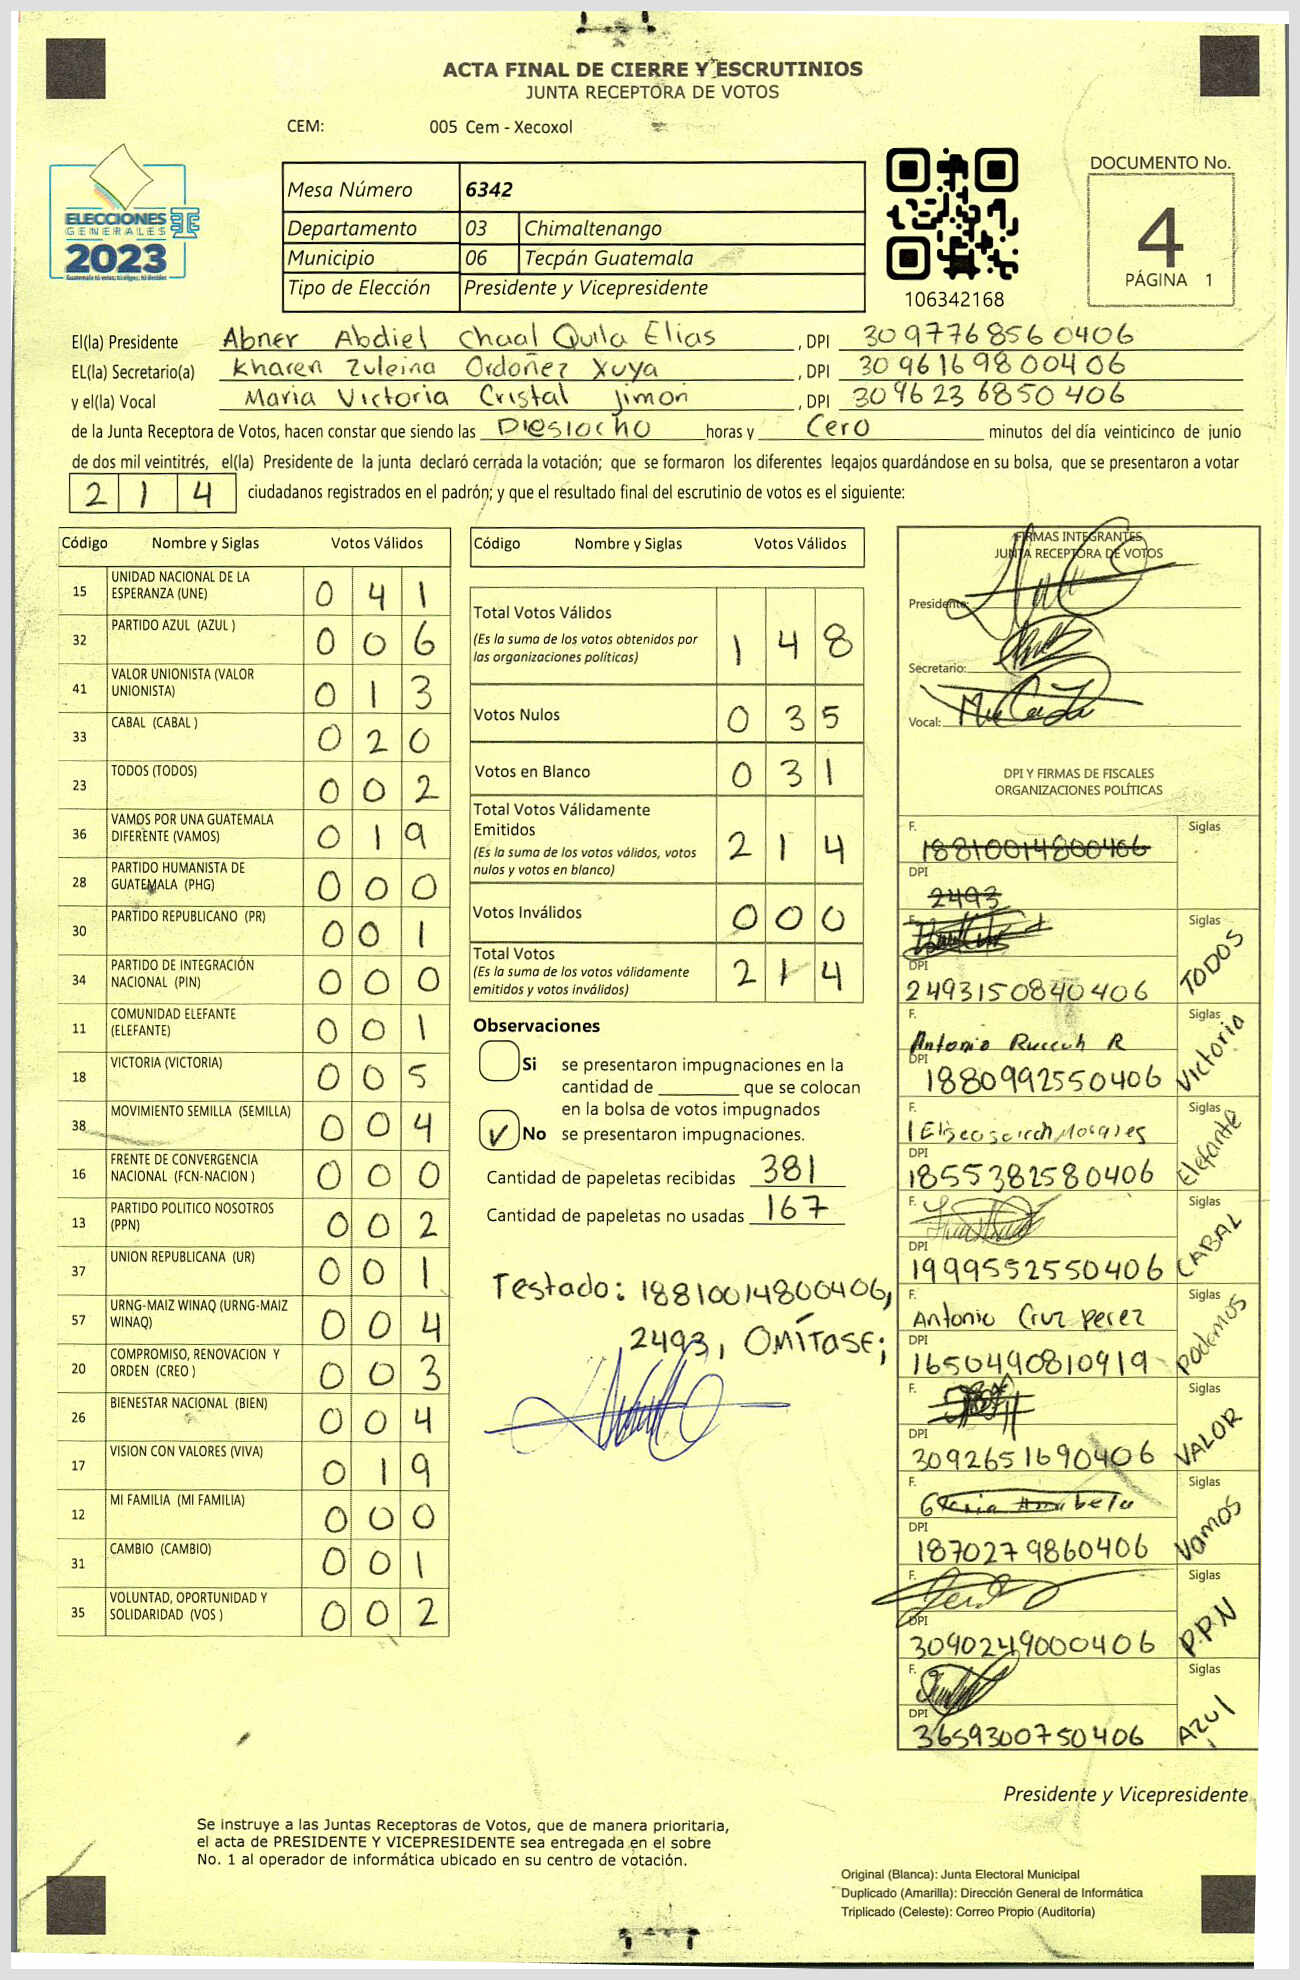 ACTA FINAL DE CIERRE Y ESCRUTINIOS
JUNTA RECEPTORA DE VOTOS
CEM: 005 Cem - Xecoxol
ELECCIONES
GENERALES
2023
Mesa Número 6342
Departamento 03 Chimaltenango
Municipio 06 Tecpán Guatemala
Tipo de Elección Presidente y Vicepresidente
106342168
DOCUMENTO No.
4
PÁGINA 1
El(la) Presidente Abner Abdiel Chaal Quila Elias, DPI 3097768560406
EL(la) Secretario(a) Kharen Zuleina Ordoñez Xuya, DPI 3096169800406
y el(la) Vocal Maria Victoria Cristal Jimon, DPI 3096236850406
de la Junta Receptora de Votos, hacen constar que siendo las Diesiocho horas y Cero minutos del día veinticinco de junio
de dos mil veintitrés, el(la) Presidente de la junta declaró cerrada la votación; que se formaron los diferentes legajos guardándose en su bolsa, que se presentaron a votar
214 ciudadanos registrados en el padrón; y que el resultado final del escrutinio de votos es el siguiente:
Código Nombre y Siglas Votos Válidos
15 UNIDAD NACIONAL DE LA ESPERANZA (UNE) 041
32 PARTIDO AZUL (AZUL ) 006
41 VALOR UNIONISTA (VALOR UNIONISTA) 013
33 CABAL (CABAL ) 020
23 TODOS (TODOS) 002
36 VAMOS POR UNA GUATEMALA DIFERENTE (VAMOS) 019
28 PARTIDO HUMANISTA DE GUATEMALA (PHG) 000
30 PARTIDO REPUBLICANO (PR) 001
34 PARTIDO DE INTEGRACIÓN NACIONAL (PIN) 000
11 COMUNIDAD ELEFANTE (ELEFANTE) 001
18 VICTORIA (VICTORIA) 005
38 MOVIMIENTO SEMILLA (SEMILLA) 004
16 FRENTE DE CONVERGENCIA NACIONAL (FCN-NACION ) 000
13 PARTIDO POLITICO NOSOTROS (PPN) 002
37 UNION REPUBLICANA (UR) 001
57 URNG-MAIZ WINAQ (URNG-MAIZ WINAQ) 004
20 COMPROMISO, RENOVACION Y ORDEN (CREO ) 003
26 BIENESTAR NACIONAL (BIEN) 004
17 VISION CON VALORES (VIVA) 019
12 MI FAMILIA (MI FAMILIA) 000
31 CAMBIO (CAMBIO) 001
35 VOLUNTAD, OPORTUNIDAD Y SOLIDARIDAD (VOS ) 002
Código Nombre y Siglas Votos Válidos
Total Votos Válidos 148
(Es la suma de los votos obtenidos por las organizaciones políticas)
Votos Nulos 035
Votos en Blanco 031
Total Votos Válidamente Emitidos 214
(Es la suma de los votos válidos, votos nulos y votos en blanco)
Votos Inválidos 000
Total Votos 214
(Es la suma de los votos válidamente emitidos y votos inválidos)
Observaciones
Si se presentaron impugnaciones en la
cantidad de ________ que se colocan
en la bolsa de votos impugnados
✓ No se presentaron impugnaciones.
Cantidad de papeletas recibidas 381
Cantidad de papeletas no usadas 167
Testado: 18810014800406,
2493, OMÍTASE;
FIRMAS INTEGRANTES
JUNTA RECEPTORA DE VOTOS
Presidente:
Secretario:
Vocal:
DPI Y FIRMAS DE FISCALES
ORGANIZACIONES POLÍTICAS
F. 18810014800406 Siglas
DPI 2493
F. Siglas TODOS
DPI 2493150840406
F. Antonio R Siglas Victoria
DPI 1880992550406
F. Siglas Elefante
DPI 1855382580406
F. Siglas CABAL
DPI 1999552550406
F. Antonio Cruz perez Siglas podemos
DPI 1650490810919
F. Siglas VALOR
DPI 3092651690406
F. Siglas Vamos
DPI 1870279860406
F. Siglas P.P.N
DPI 3090249000406
F. Siglas Azul
DPI 3659300750406
Presidente y Vicepresidente
Se instruye a las Juntas Receptoras de Votos, que de manera prioritaria,
el acta de PRESIDENTE Y VICEPRESIDENTE sea entregada en el sobre
No. 1 al operador de informática ubicado en su centro de votación.
Original (Blanca): Junta Electoral Municipal
Duplicado (Amarilla): Dirección General de Informática
Triplicado (Celeste): Correo Propio (Auditoría)